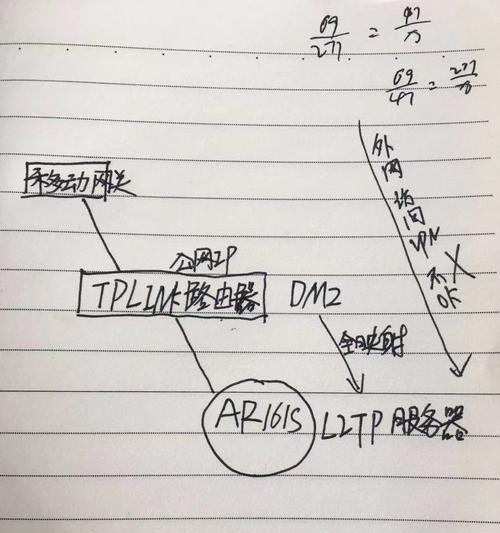 69/277 = 47/n
69/47 = 277/n
外网访问VPN不OK
移动网关
公网IP
TPLINK路由器 DMZ
全映射
AR161S L2TP服务器